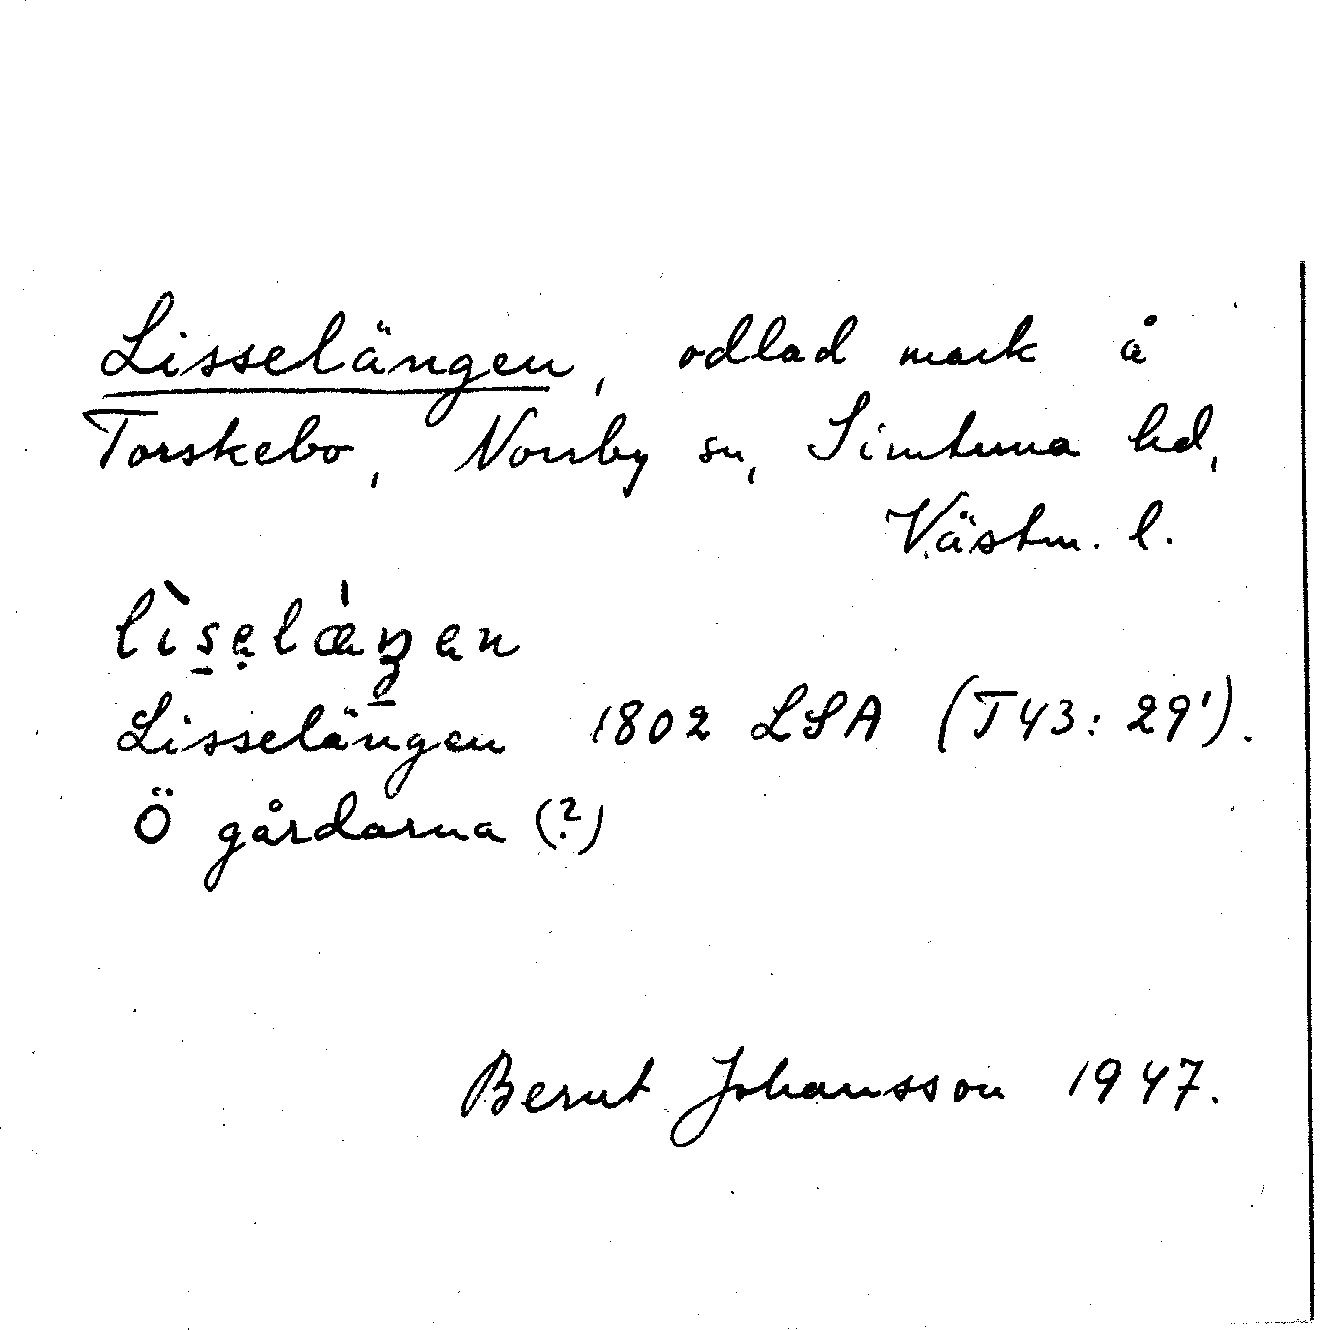 Lisselängen, odlad mark å
Torskebo, Norrby sn, Simtuna hd,
Västm. l.
lìsẹlǽŋen
Lisselängen 1802 LSA (T43:29').
Ö gårdarna (?)
Bernt Johansson 1947.